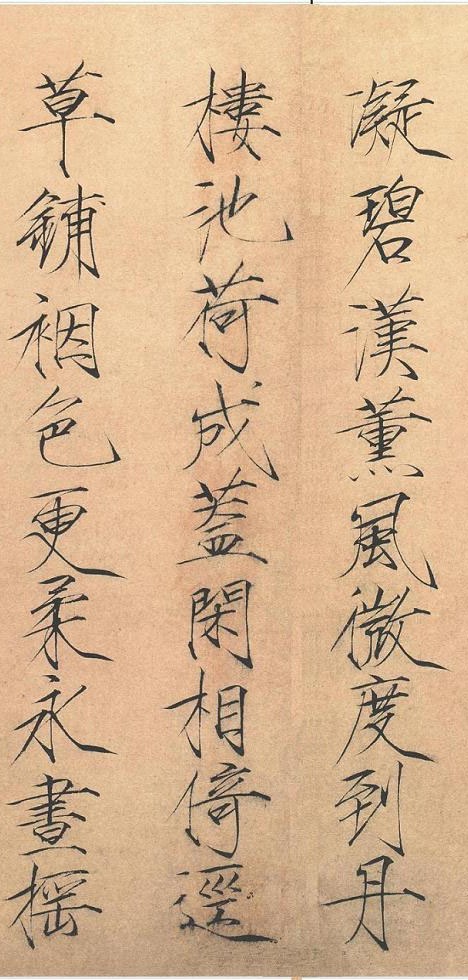 凝碧漢薰風微度到丹
樓池荷成蓋閑相倚逕
草鋪裀色更柔永晝搖